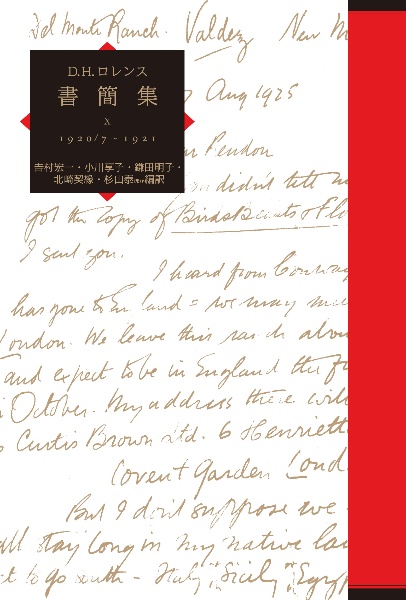 Del Monte Ranch. Valdez New M
D.H.ロレンス
書簡集
X
1920/7-1921
吉村宏一・小川享子・鎌田明子・
北崎契縁・杉山泰ほか編訳
7 Aug 1925
Pendon
didn't tell m
got the copy of Birds Beasts & Flo
I sent you.
I heard from Conway
has gone to England = we may
London. We leave this ranch abou
and expect to be in England the fi
October. My address there will
Curtis Brown Ltd. 6 Henriett
Covent Garden Lond
But I don't suppose we
all stay long in my native la
t to go south - Italy, Sicily or Egyp